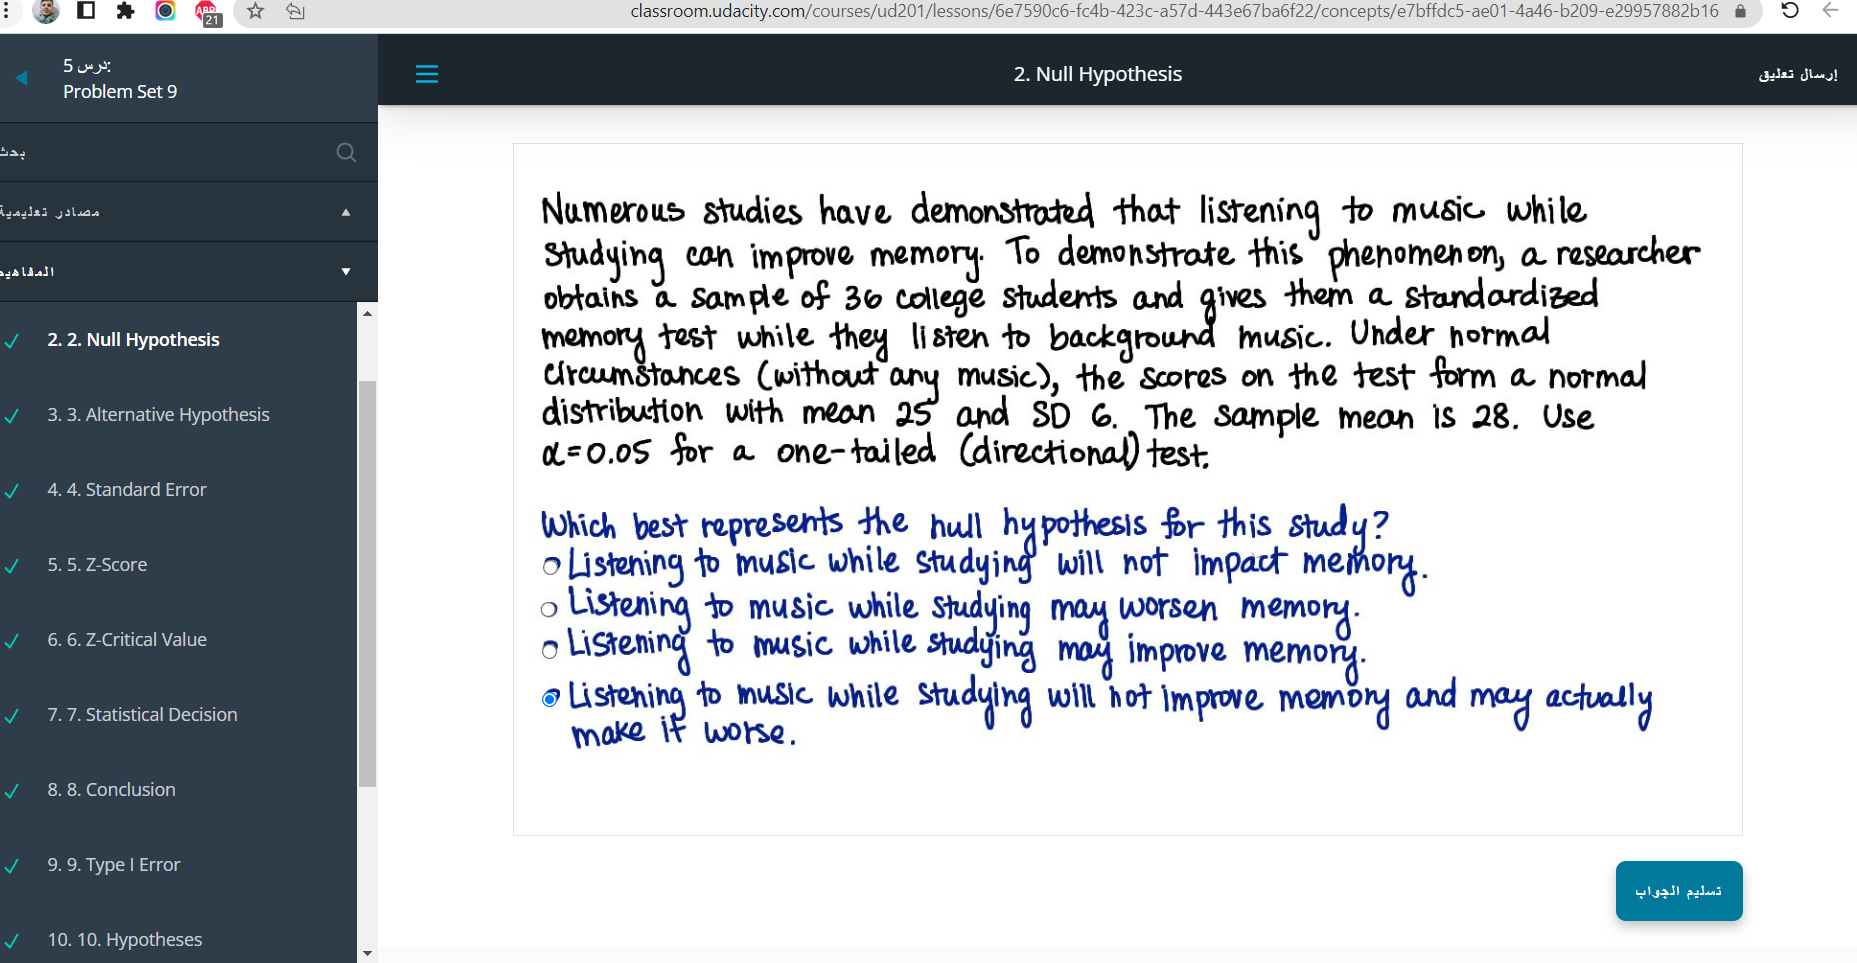 21
classroom.udacity.com/courses/ud201/lessons/6e7590c6-fc4b-423c-a57d-443e67ba6f22/concepts/e7bffdc5-ae01-4a46-b209-e29957882b16
درس 5:
Problem Set 9
2. Null Hypothesis
إرسال تعليق
بحث
مصادر تعليمية
2. 2. Null Hypothesis
3. 3. Alternative Hypothesis
4. 4. Standard Error
5. 5. Z-Score
6. 6. Z-Critical Value
7. 7. Statistical Decision
8. 8. Conclusion
9. 9. Type I Error
10. 10. Hypotheses
Numerous studies have demonstrated that listening to music while
studying can improve memory. To demonstrate this phenomenon, a researcher
obtains a sample of 36 college students and gives them a standardized
memory test while they listen to background music. Under normal
circumstances (without any music), the scores on the test form a normal
distribution with mean 25 and SD 6. The sample mean is 28. Use
α=0.05 for a one-tailed (directional) test.
Which best represents the null hypothesis for this study?
Listening to music while studying will not impact memory.
Listening to music while studying may worsen memory.
Listening to music while studying may improve memory.
Listening to music while studying will not improve memory and may actually
make it worse.
تسليم الجواب